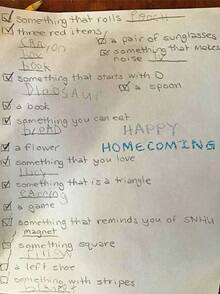 something that rolls Pencil
three red items
crayon
a pair of sunglasses
box
something that makes
noise
book
something that starts with D
Dinosaur
a spoon
a book
something you can eat
bread
HAPPY
a flower
HOMECOMING
something that you love
Lucy
something that is a triangle
earring
a game
something that reminds you of SNHU
magnet
something square
pillow
a left shoe
something with stripes